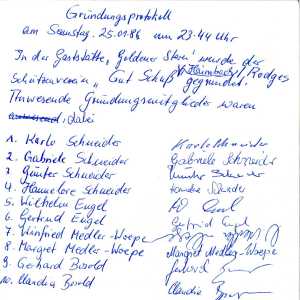 Gründungsprotokoll
am Samstag, 25.01.86 um 23:44 Uhr
In der Gaststätte „Goldener Stern" wurde der
Schützenverein „Gut Schuß Rodges
gegründet.
Anwesende Gründungsmitglieder waren
dabei
1. Karlo Schneider
2. Gabriele Schneider
3. Günter Schneider
4. Hannelore Schneider
5. Wilhelm Engel
6. Gertrud Engel
7. Winfried Medler-Woepe
8. Margret Medler-Woepe
9. Gerhard
10. Claudia
Gabriele Schneider
Gertrud Engel
Margret Medler-Woepe
Gerhard
Claudia